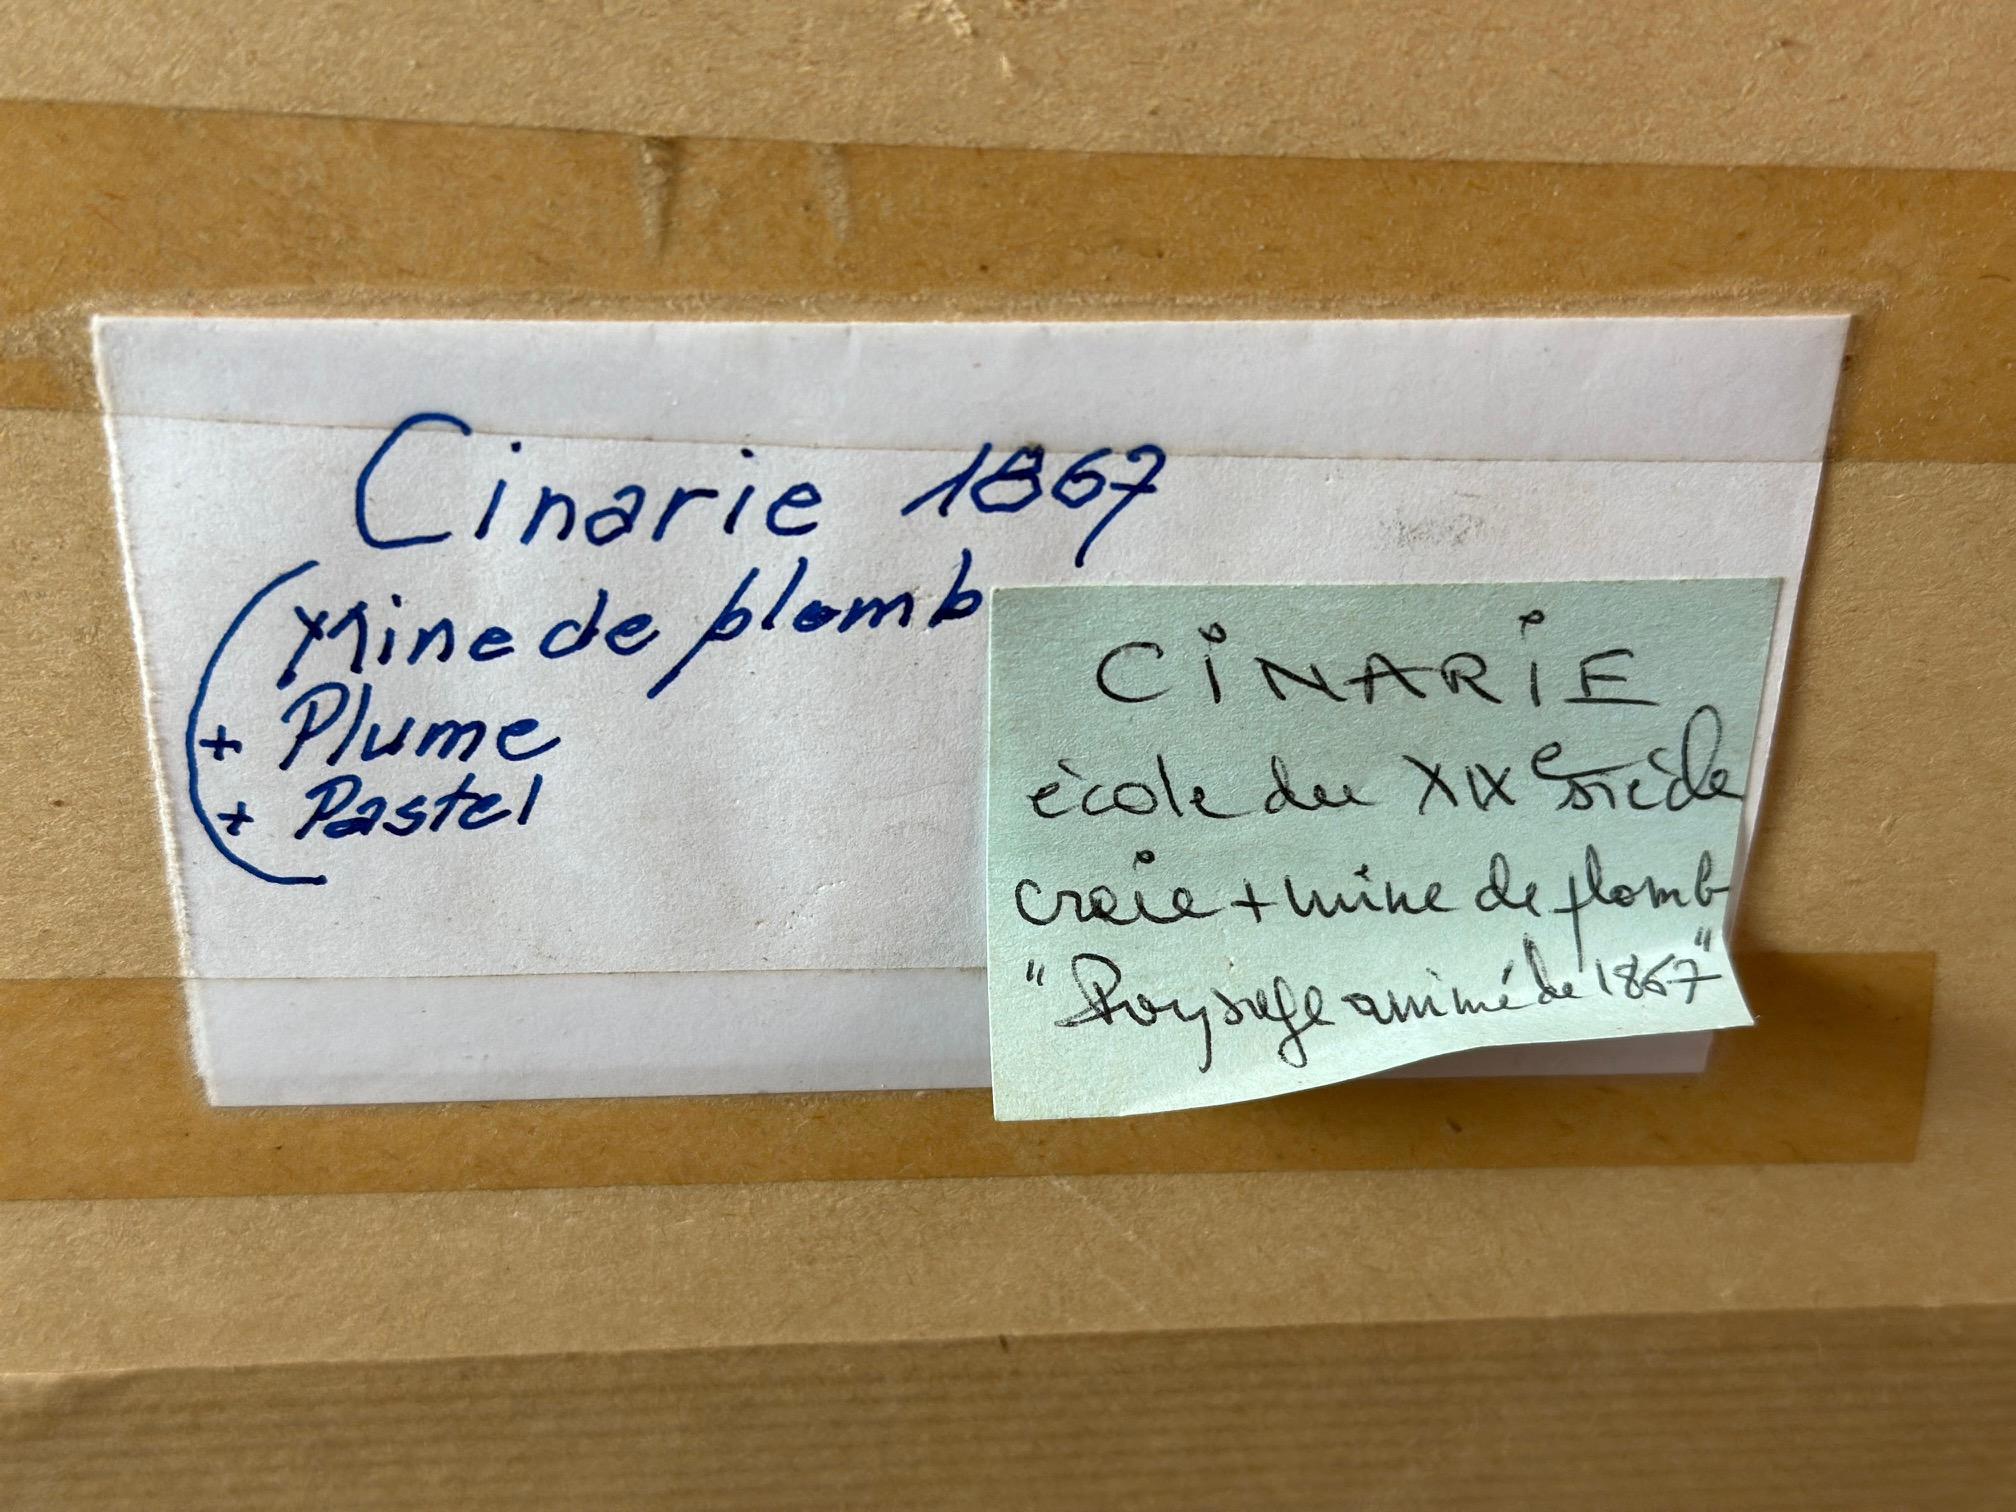 Cinarie 1867
(Mine de plomb
+ Plume
+ Pastel
CiNARiE
école du XIXe siècle
craie + mine de plomb
"Paysage animé de 1867"